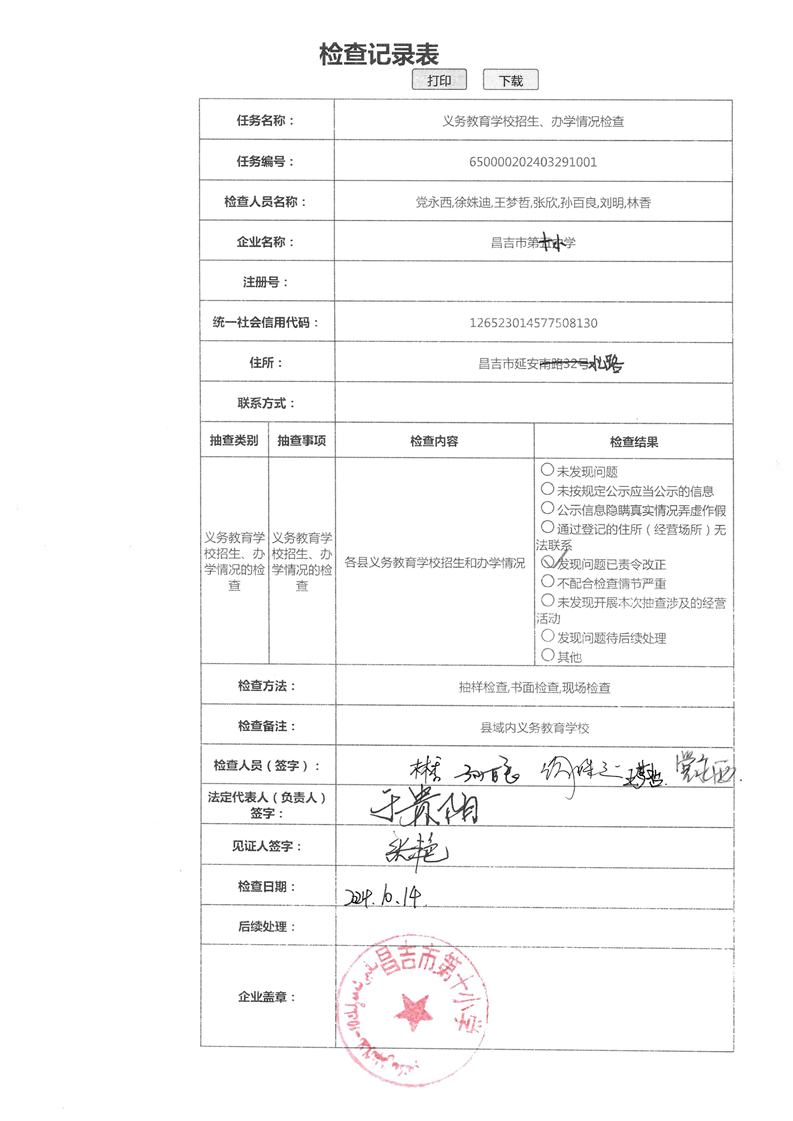 检查记录表
打印 下载
任务名称： 义务教育学校招生、办学情况检查
任务编号： 650000202403291001
检查人员名称： 党永西,徐姝迪,王梦哲,张欣,孙百良,刘明,林香
企业名称： 昌吉市第十小学
注册号：
统一社会信用代码： 126523014577508130
住所： 昌吉市延安南路32号北路
联系方式：
抽查类别 抽查事项 检查内容 检查结果
义务教育学校招生、办学情况的检查 义务教育学校招生、办学情况的检查 各县义务教育学校招生和办学情况
未发现问题
未按规定公示应当公示的信息
公示信息隐瞒真实情况弄虚作假
通过登记的住所（经营场所）无
法联系
发现问题已责令改正
不配合检查情节严重
未发现开展本次抽查涉及的经营
活动
发现问题待后续处理
其他
检查方法： 抽样检查,书面检查,现场检查
检查备注： 县域内义务教育学校
检查人员（签字）： 林香 孙百良 徐姝迪 王梦哲 党永西
法定代表人（负责人）
签字：
见证人签字： 张艳
检查日期： 2024.10.14
后续处理：
企业盖章：
昌吉市第十小学